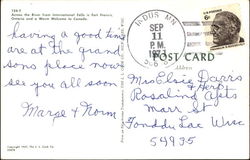 Across the River from International Falls is Fort Frances,
Ontario and a Warm Welcome to Canada.
INDUS MN
SEP
11
PM
POST CARD
Address
having a good time
are at the grand
sons place now
see you all soon
Marge & Norm
Mrs Elsie Daors
& Herb
Rosaling Apts
Marr St
Fond du Lac Wisc
54935